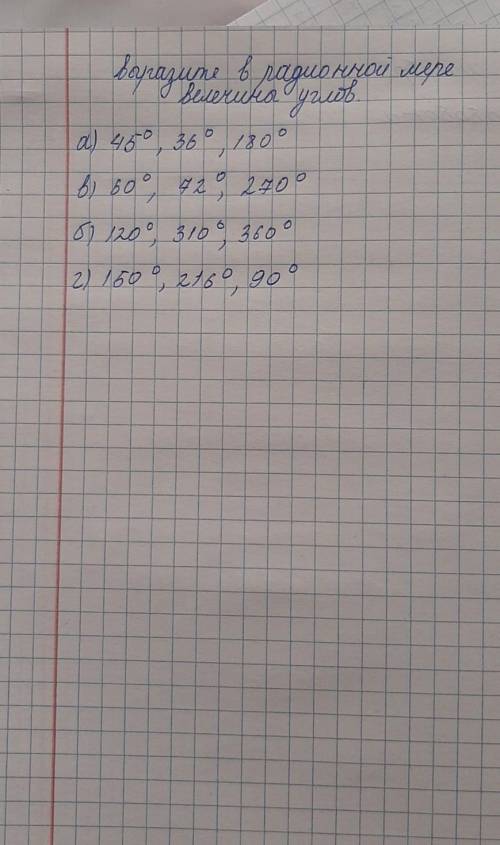 Выразите в радионной мере
велечина углов.
а) 45°, 36°, 180°
в) 60°, 72°, 270°
б) 120°, 310°, 360°
г) 150°, 216°, 90°